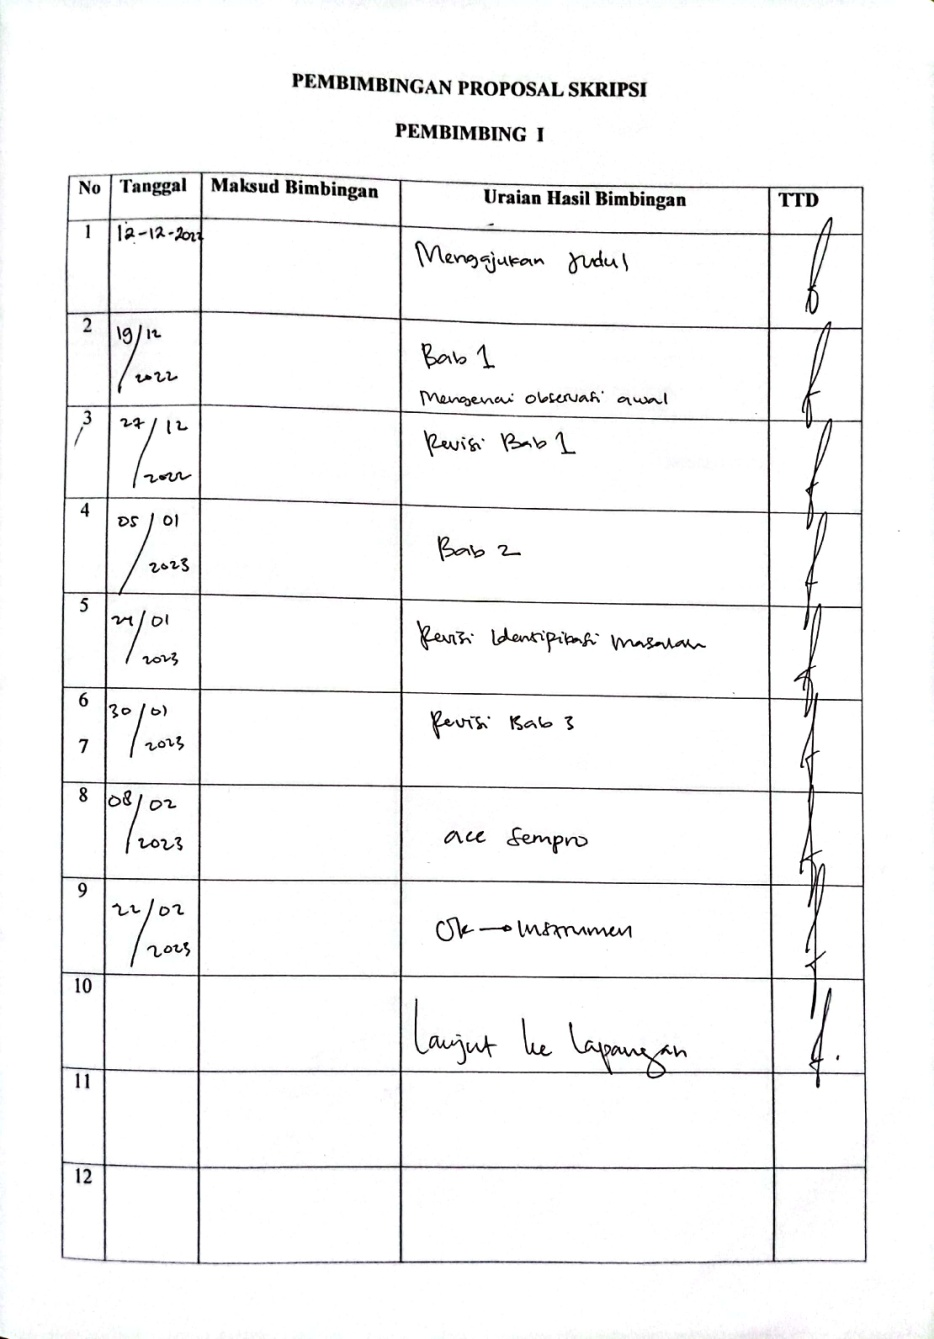 PEMBIMBINGAN PROPOSAL SKRIPSI
PEMBIMBING I
No Tanggal Maksud Bimbingan Uraian Hasil Bimbingan TTD
1 12-12-2022 Mengajukan Judul
2 19/12/2022 Bab 1
Mengenai observasi awal
3 27/12/2022 Revisi Bab 1
4 05/01/2023 Bab 2
5 /01/2023 Revisi Identifikasi masalah
6 30/01/2023 Revisi Bab 3
7
8 08/02/2023 acc Sempro
9 22/02/2023 Ok → Instrumen
10 Lanjut ke Lapangan
11
12